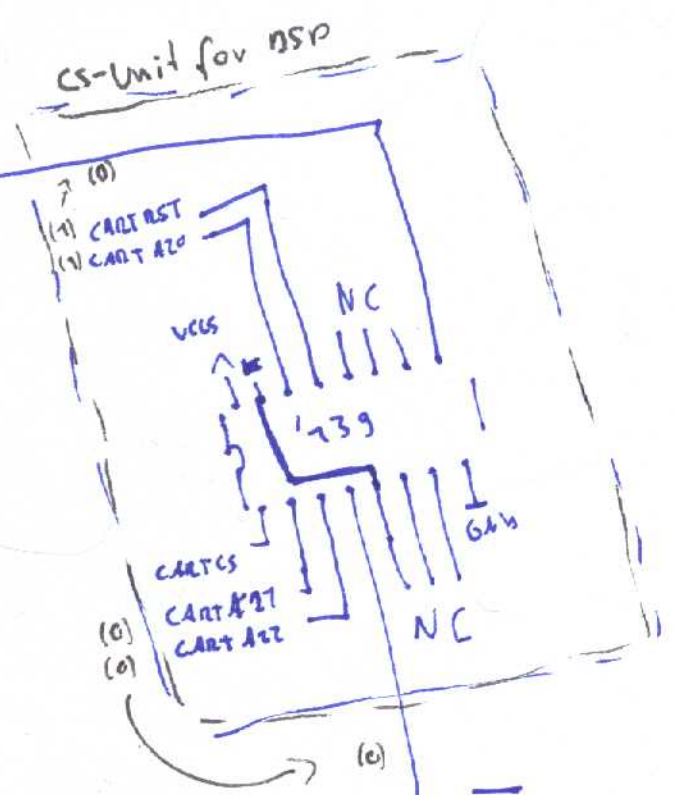 CS-Unit for DSP
(0)
(1) CART RST
(1) CART A20
NC
VCC5
'139
GND
CART CS
CART A21
CART A22
NC
(0)
(0)
(0)